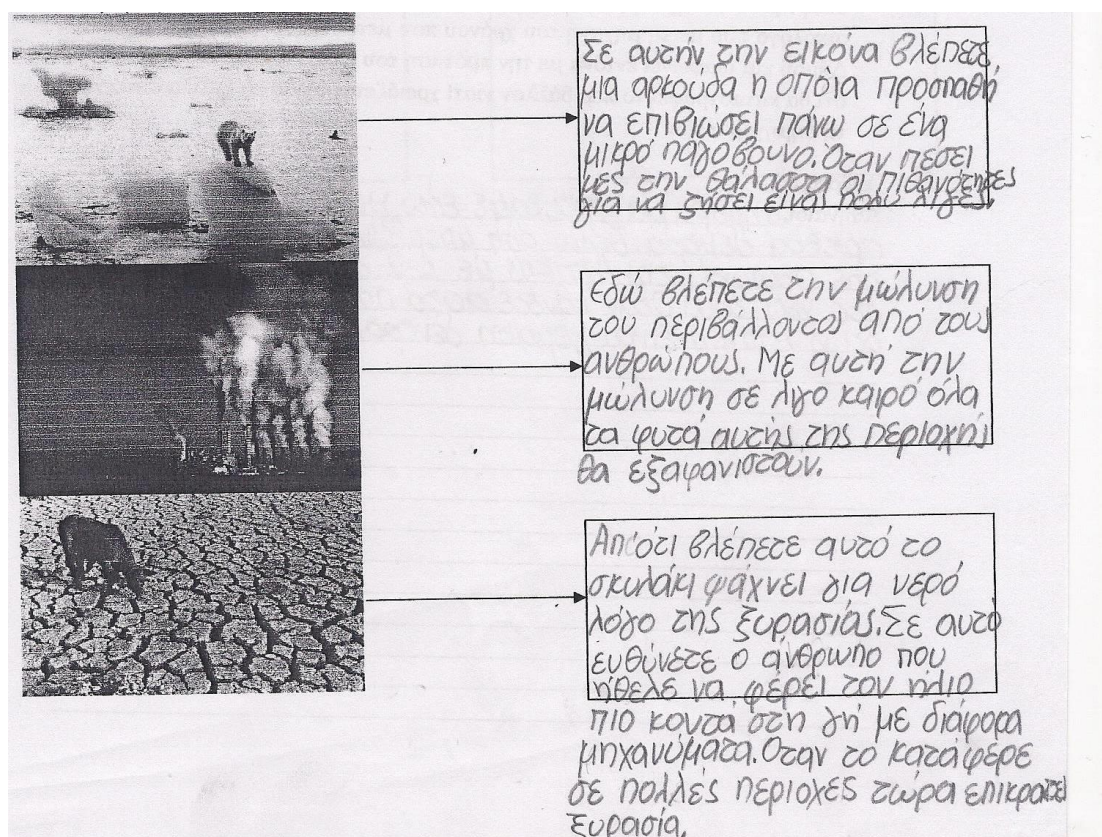 Σε αυτήν την εικόνα βλέπετε,
μια αρκούδα η οποία προσπαθή
να επιβιώσει πάνω σε ένα
μικρό παγόβουνο. Όταν πέσει
μες την θάλασσα οι πιθανότητες
για να ζήσει είναι πολύ λίγες.
Εδώ βλέπετε την μώλυνση
του περιβάλλοντος από τους
ανθρώπους. Με αυτή την
μώλυνση σε λιγο καιρό όλα
τα φυτά αυτής της περιοχής
θα εξαφανιστουν.
Απ'ότι βλέπετε αυτό το
σκυλάκι ψάχνει για νερό
λόγο της ξυρασίας. Σε αυτό
ευθύνετε ο άνθρωπο που
ήθελε να φέρει τον ήλιο
πιο κοντά στη γή με διάφορα
μηχανύματα. Οταν το κατάφερε
σε πολλές περιοχες τώρα επικρατεί
ξυρασία.